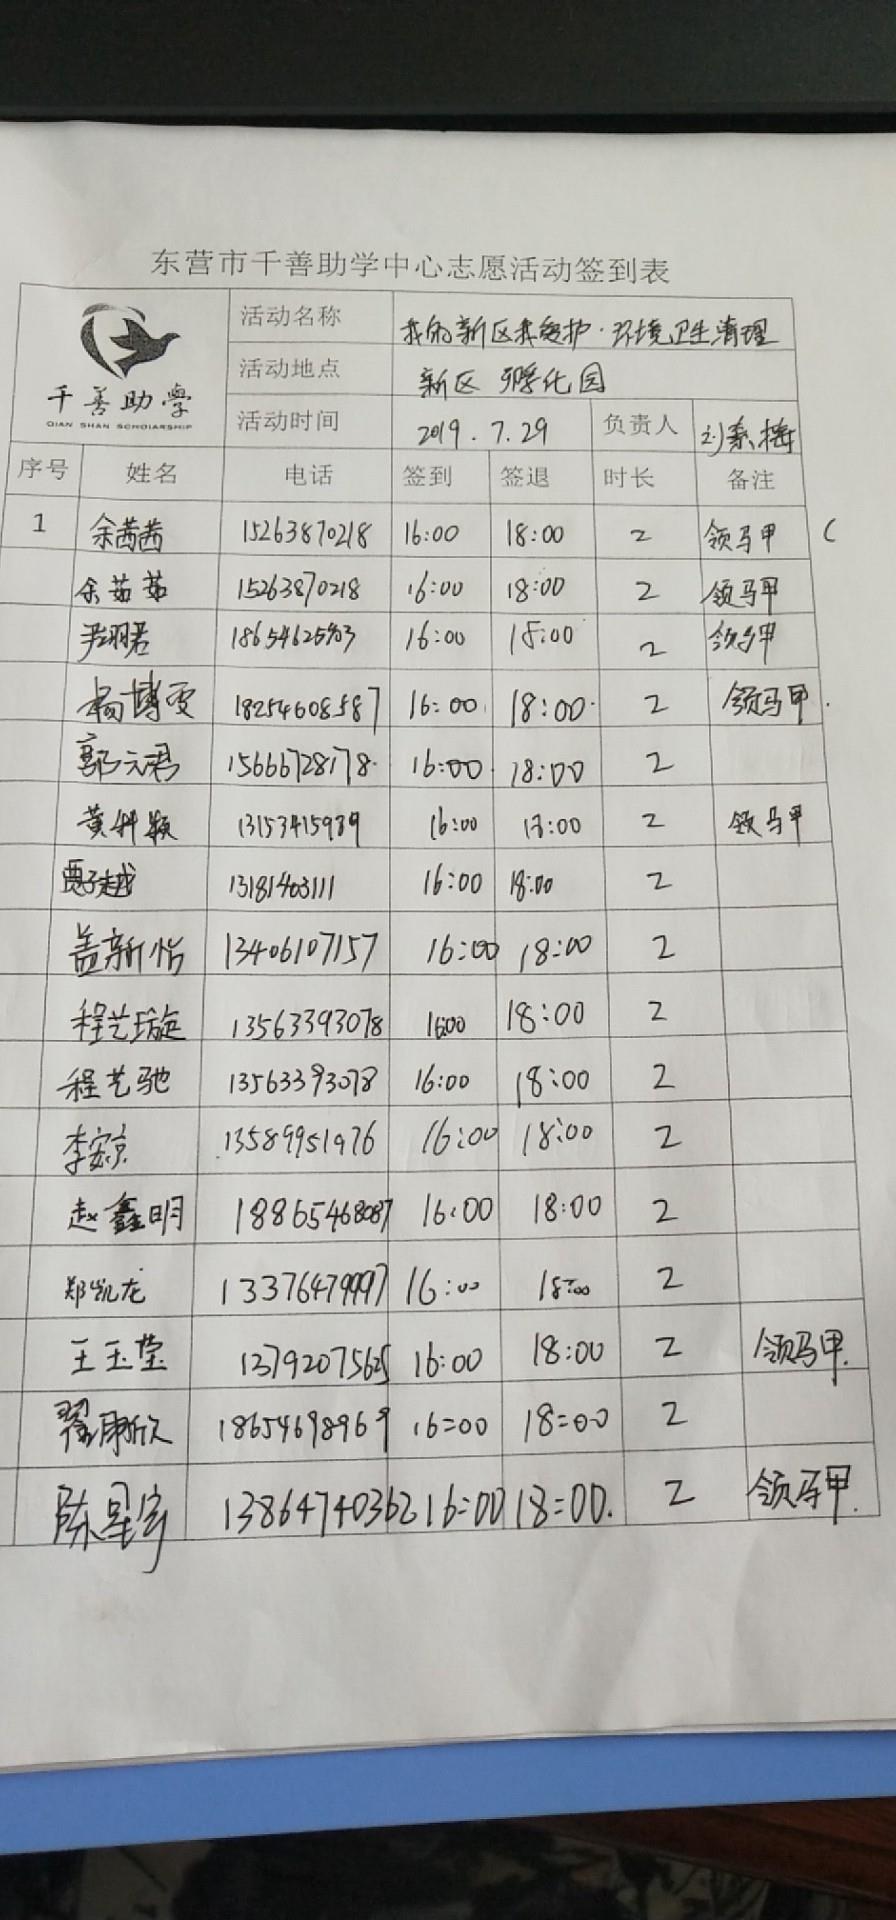 东营市千善助学中心志愿活动签到表
千善助學
QIAN SHAN SCHOLARSHIP
活动名称 我的新区我爱护·环境卫生清理
活动地点 新区 孵化园
活动时间 2019.7.29 负责人 刘素梅
序号 姓名 电话 签到 签退 时长 备注
1 余茜茜 15263870218 16:00 18:00 2 领马甲
余茹茹 15263870218 16:00 18:00 2 领马甲
尹羽君 16:00 18:00 2 领马甲
杨博雯 18254608587 16:00 18:00 2 领马甲.
郭元君 15666728178 16:00 18:00 2
黄舒颖 13153415989 16:00 18:00 2 领马甲
贾子越 13181403111 16:00 18:00 2
盖新怡 13406107157 16:00 18:00 2
程艺璇 13563393078 16:00 18:00 2
程艺驰 13563393078 16:00 18:00 2
李京 13589951976 16:00 18:00 2
赵鑫明 18865468087 16:00 18:00 2
郑凯龙 13376479997 16:00 18:00 2
王玉莹 13792075625 16:00 18:00 2 领马甲.
翟康欣 18654698969 16:00 18:00 2
陈星宇 13864740362 16:00 18:00. 2 领马甲.